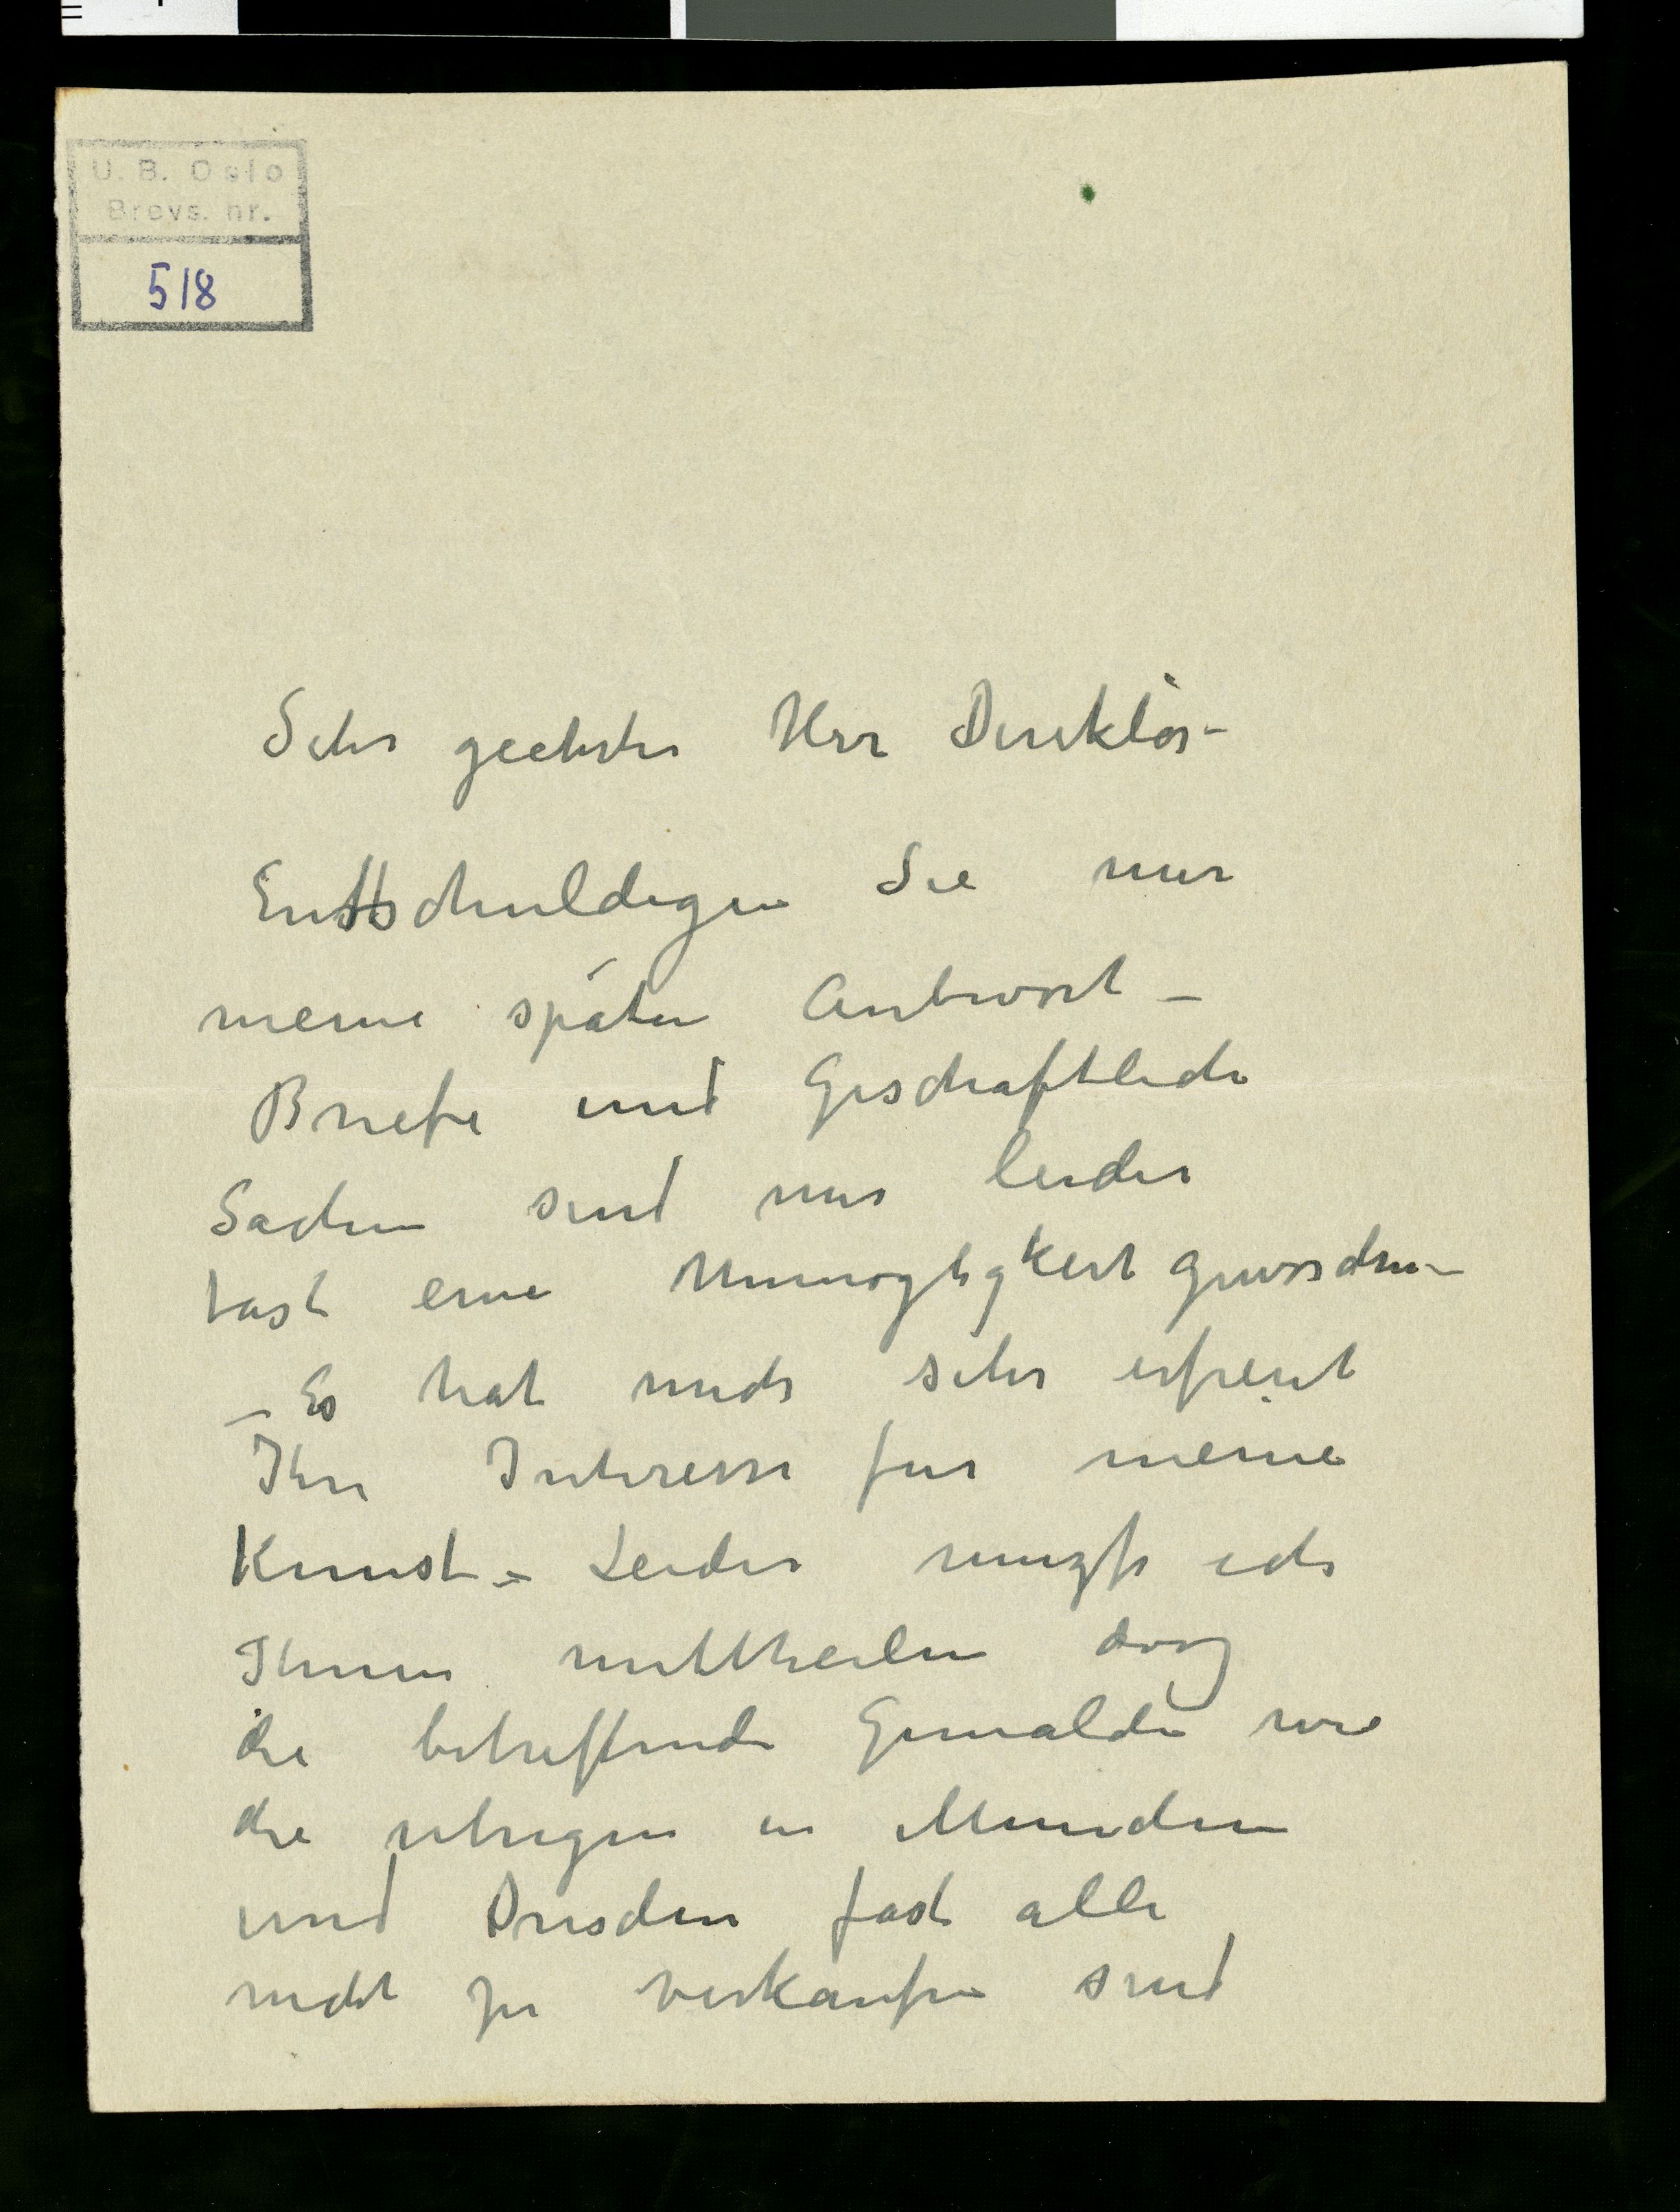 U. B. Oslo
Brevs. nr.
518
Sehr geehrter Herr Direktör –
Enttschuldigen Sie mir
meine späten Antwort –
Briefe und Geschaftliche
Sachen sind mir leider
fast eine Unmogligkeit geworden –
– Es hat mich sehr erfreut
Ihre Interesse fur meine
Kunst – Leider muszte ich
Ihnen mittheilen dasz
die betreffende Gemalde wie
die ubrigen in Munchen
und Dresden fast alle
nicht zu verkaufen sind